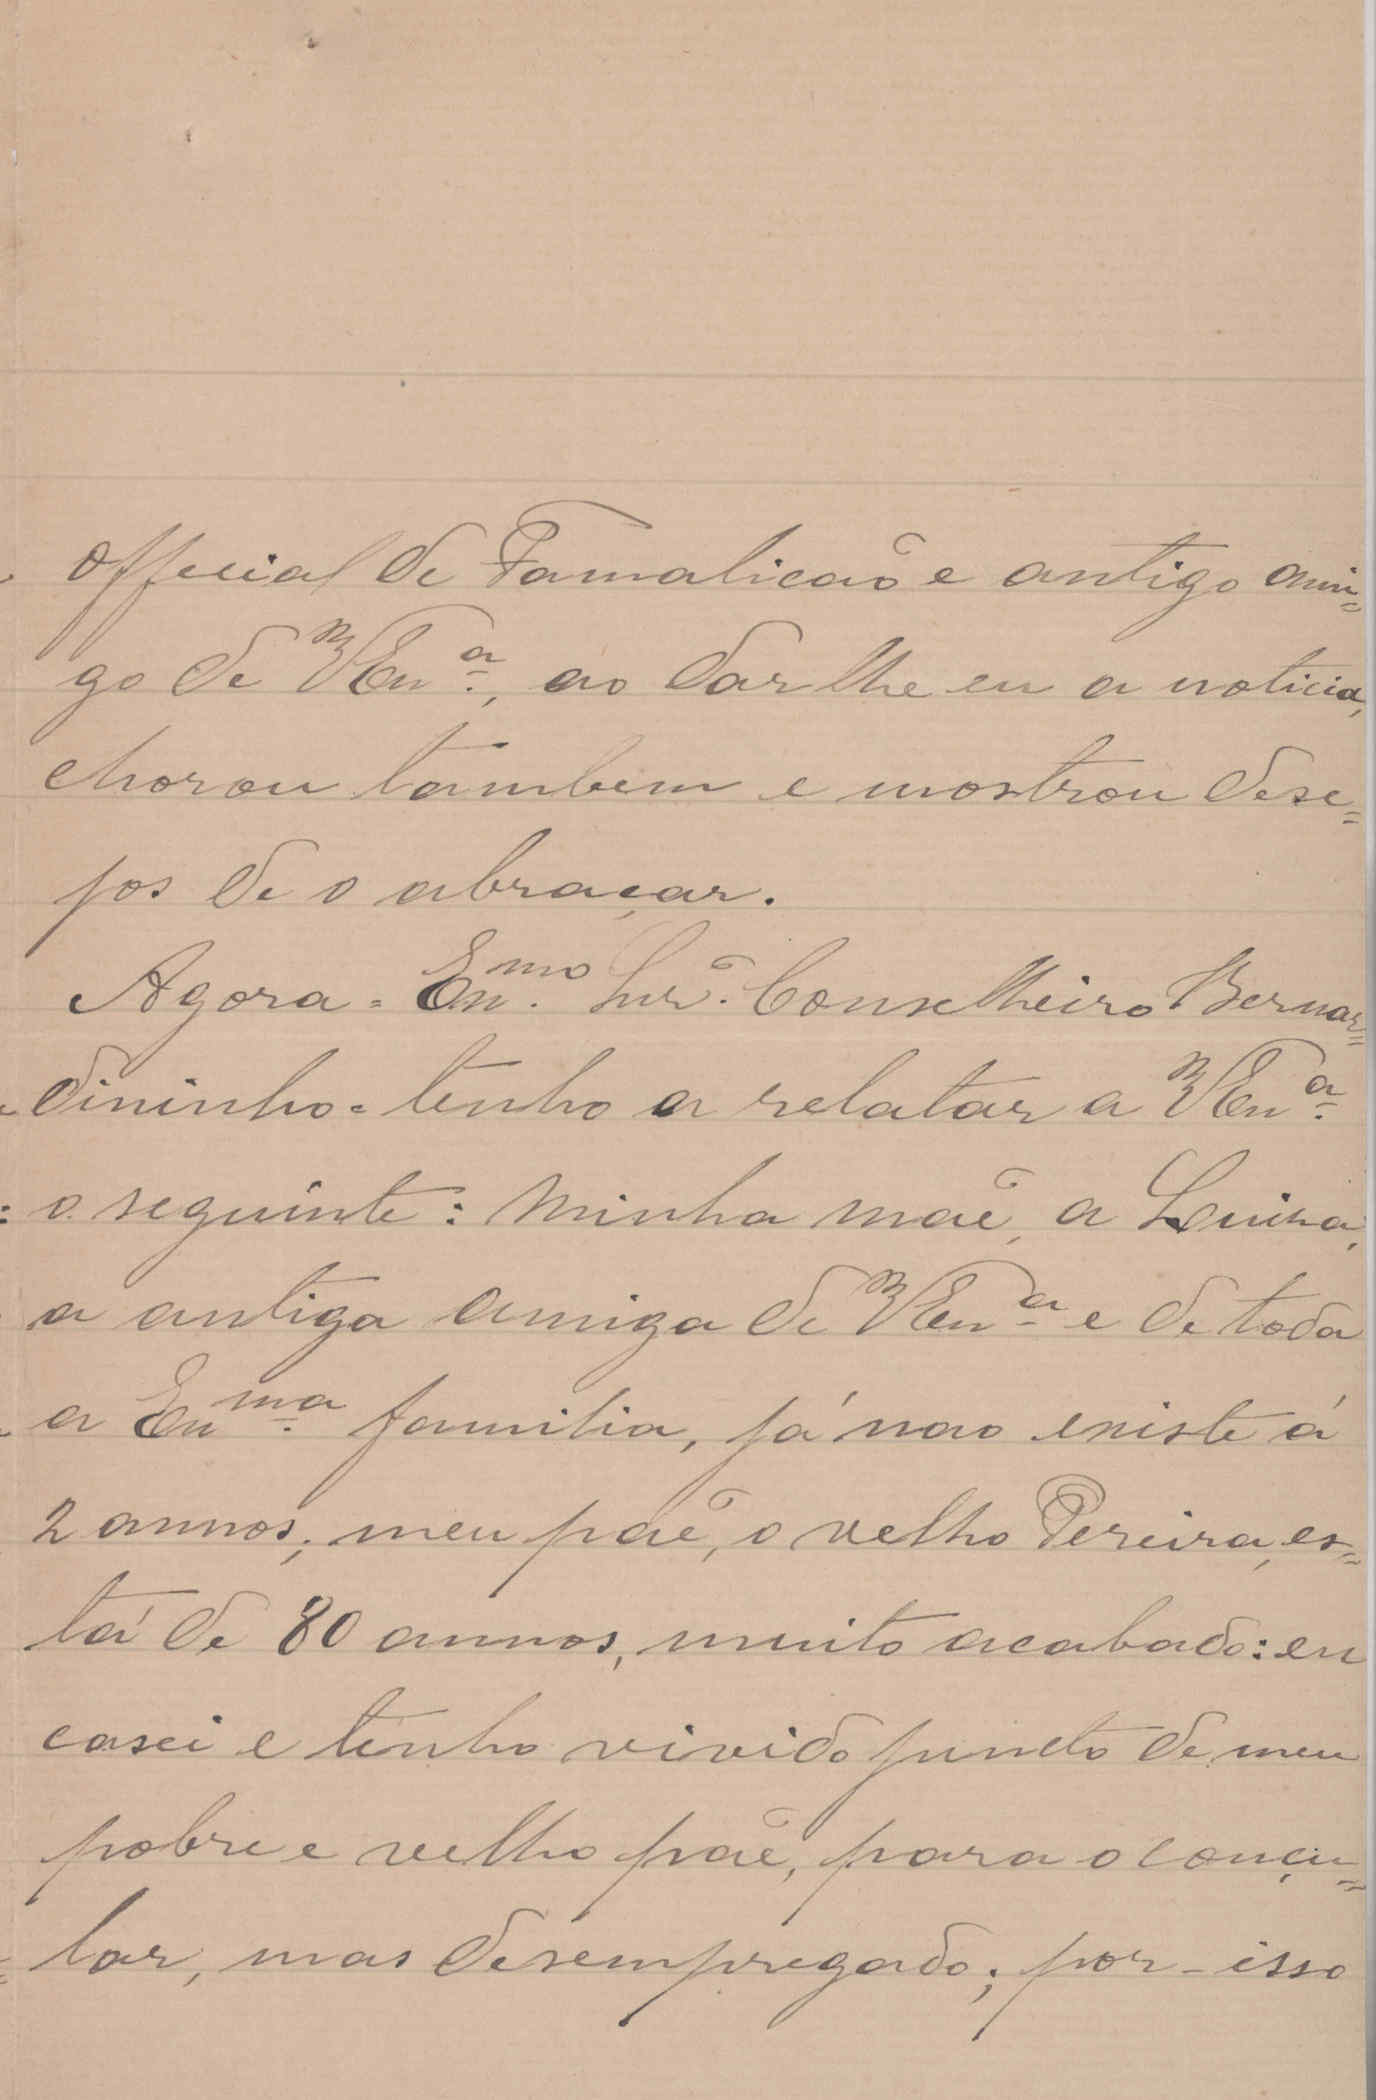 official de Famalicaõ e antigo ami=
go de V Exª, ao dar lhe eu a noticia,
chorou tambem e mostrou dese=
jos de o abraçar.
Agora = Exmº Snr. Conselheiro Bernar=
dininho = tenho a relatar a V Exª
o seguinte: Minha maẽ, a Luiza,
a antiga amiga de V Exª e de toda
a Exmª familia, já nao existe á
2 annos; meu paẽ, o velho Pereira, es=
tá de 80 annos, muito acabado: eu
casei e tenho vivido juncto de meu
pobre e velho paẽ, para o conçu=
lar, mas desempregado; por-isso